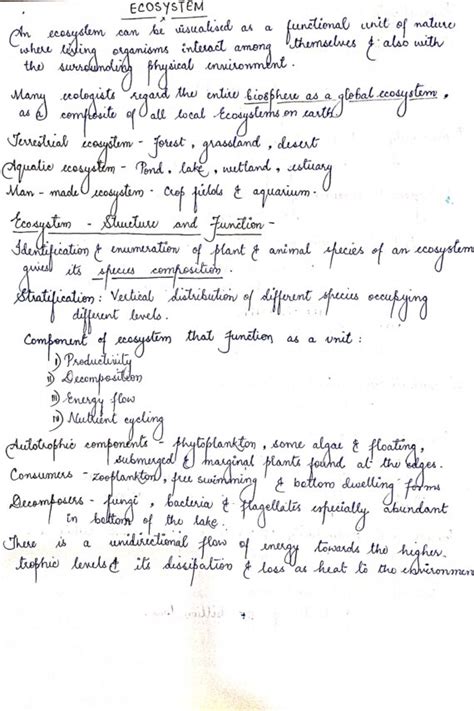 ECOSYSTEM
An ecosystem can be visualised as a functional unit of nature
where living organisms interact among themselves & also with
the surrounding physical environment.
Many ecologists regard the entire biosphere as a global ecosystem,
as a composite of all local Ecosystems on earth
Terrestrial ecosystem - Forest, grassland, desert
Aquatic ecosystem - Pond, lake, wetland, estuary
Man-made ecosystem - Crop fields & aquarium.
Ecosystem - Structure and Function -
Identification & enumeration of plant & animal species of an ecosystem
gives its species composition.
Stratification: Vertical distribution of different species occupying
different levels.
Component of ecosystem that function as a unit:
i) Productivity
ii) Decomposition
iii) Energy flow
iv) Nutrient cycling
Autotrophic components - phytoplankton, some algae & floating,
submerged & marginal plants found at the edges.
Consumers - zooplankton, free swimming & bottom dwelling forms
Decomposers - fungi, bacteria & flagellates especially abundant
in bottom of the lake.
There is a unidirectional flow of energy towards the higher
trophic levels & its dissipation & loss as heat to the environment